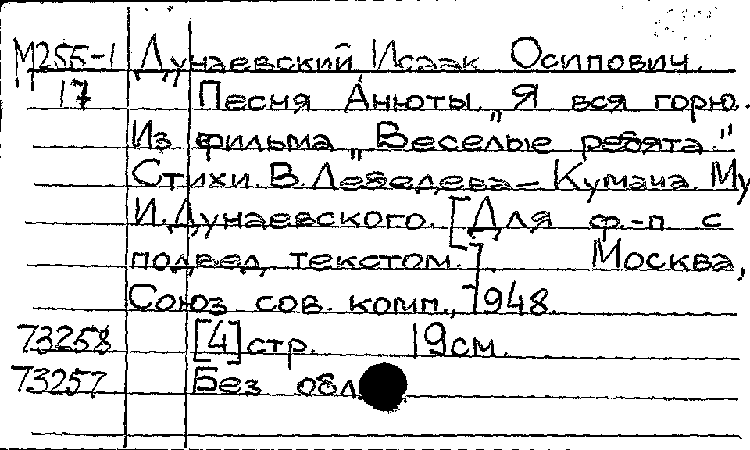 М255-1 Дунаевский Исаак Осипович.
17 Песня Анюты „Я вся горю..
Из фильма „Веселые ребята."
Стихи В. Лебедева-Кумача. Му
И. Дунаевского. [Для ф.-п с
подвед. текстом.]. Москва,
Союз сов. комп., 1948.
73258 [4] стр. 19см.
73257 Без обл